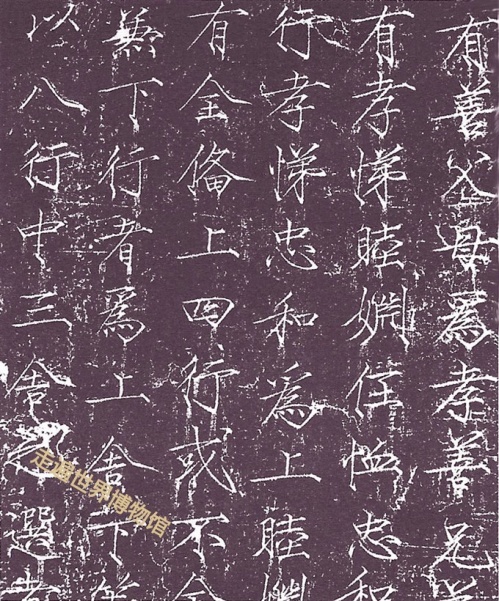 有善父母爲孝善兄
有孝悌睦婣任恤忠和
行孝悌忠和爲上睦婣
有全俻上四行或不全
兼下行者爲上舎下等
以八行中三舎之選者
走遍世界博物馆